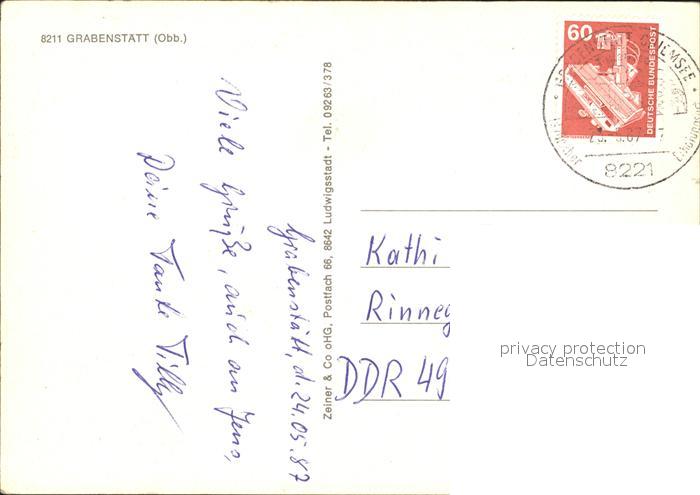 8211 GRABENSTÄTT (Obb.)
60
DEUTSCHE BUNDESPOST
CHIEMSEE
8221
Grabenstätt, d. 24.05.87
Viele Grüße, auch an Jens,
Deine Tante Tilly
Zeiner & Co oHG, Postfach 66, 8642 Ludwigsstadt - Tel. 09263/378
Kathi
Rinneg
DDR 49
privacy protection
Datenschutz